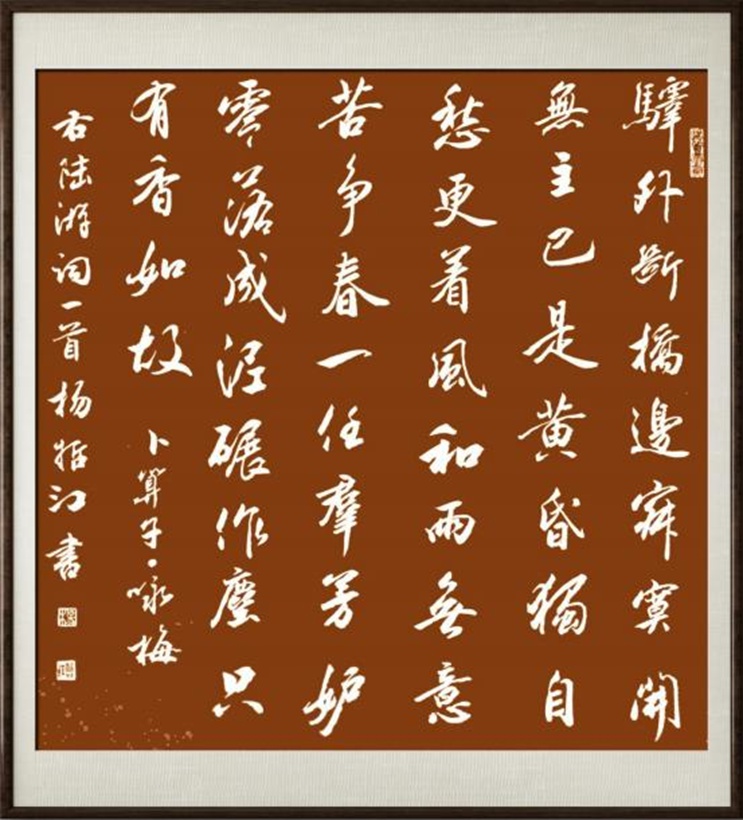 驛外斷橋邊寂寞開
無主已是黃昏獨自
愁更着風和雨無意
苦争春一任羣芳妒
零落成泥碾作塵只
有香如故 卜算子·咏梅
右陆游词一首杨哲江书